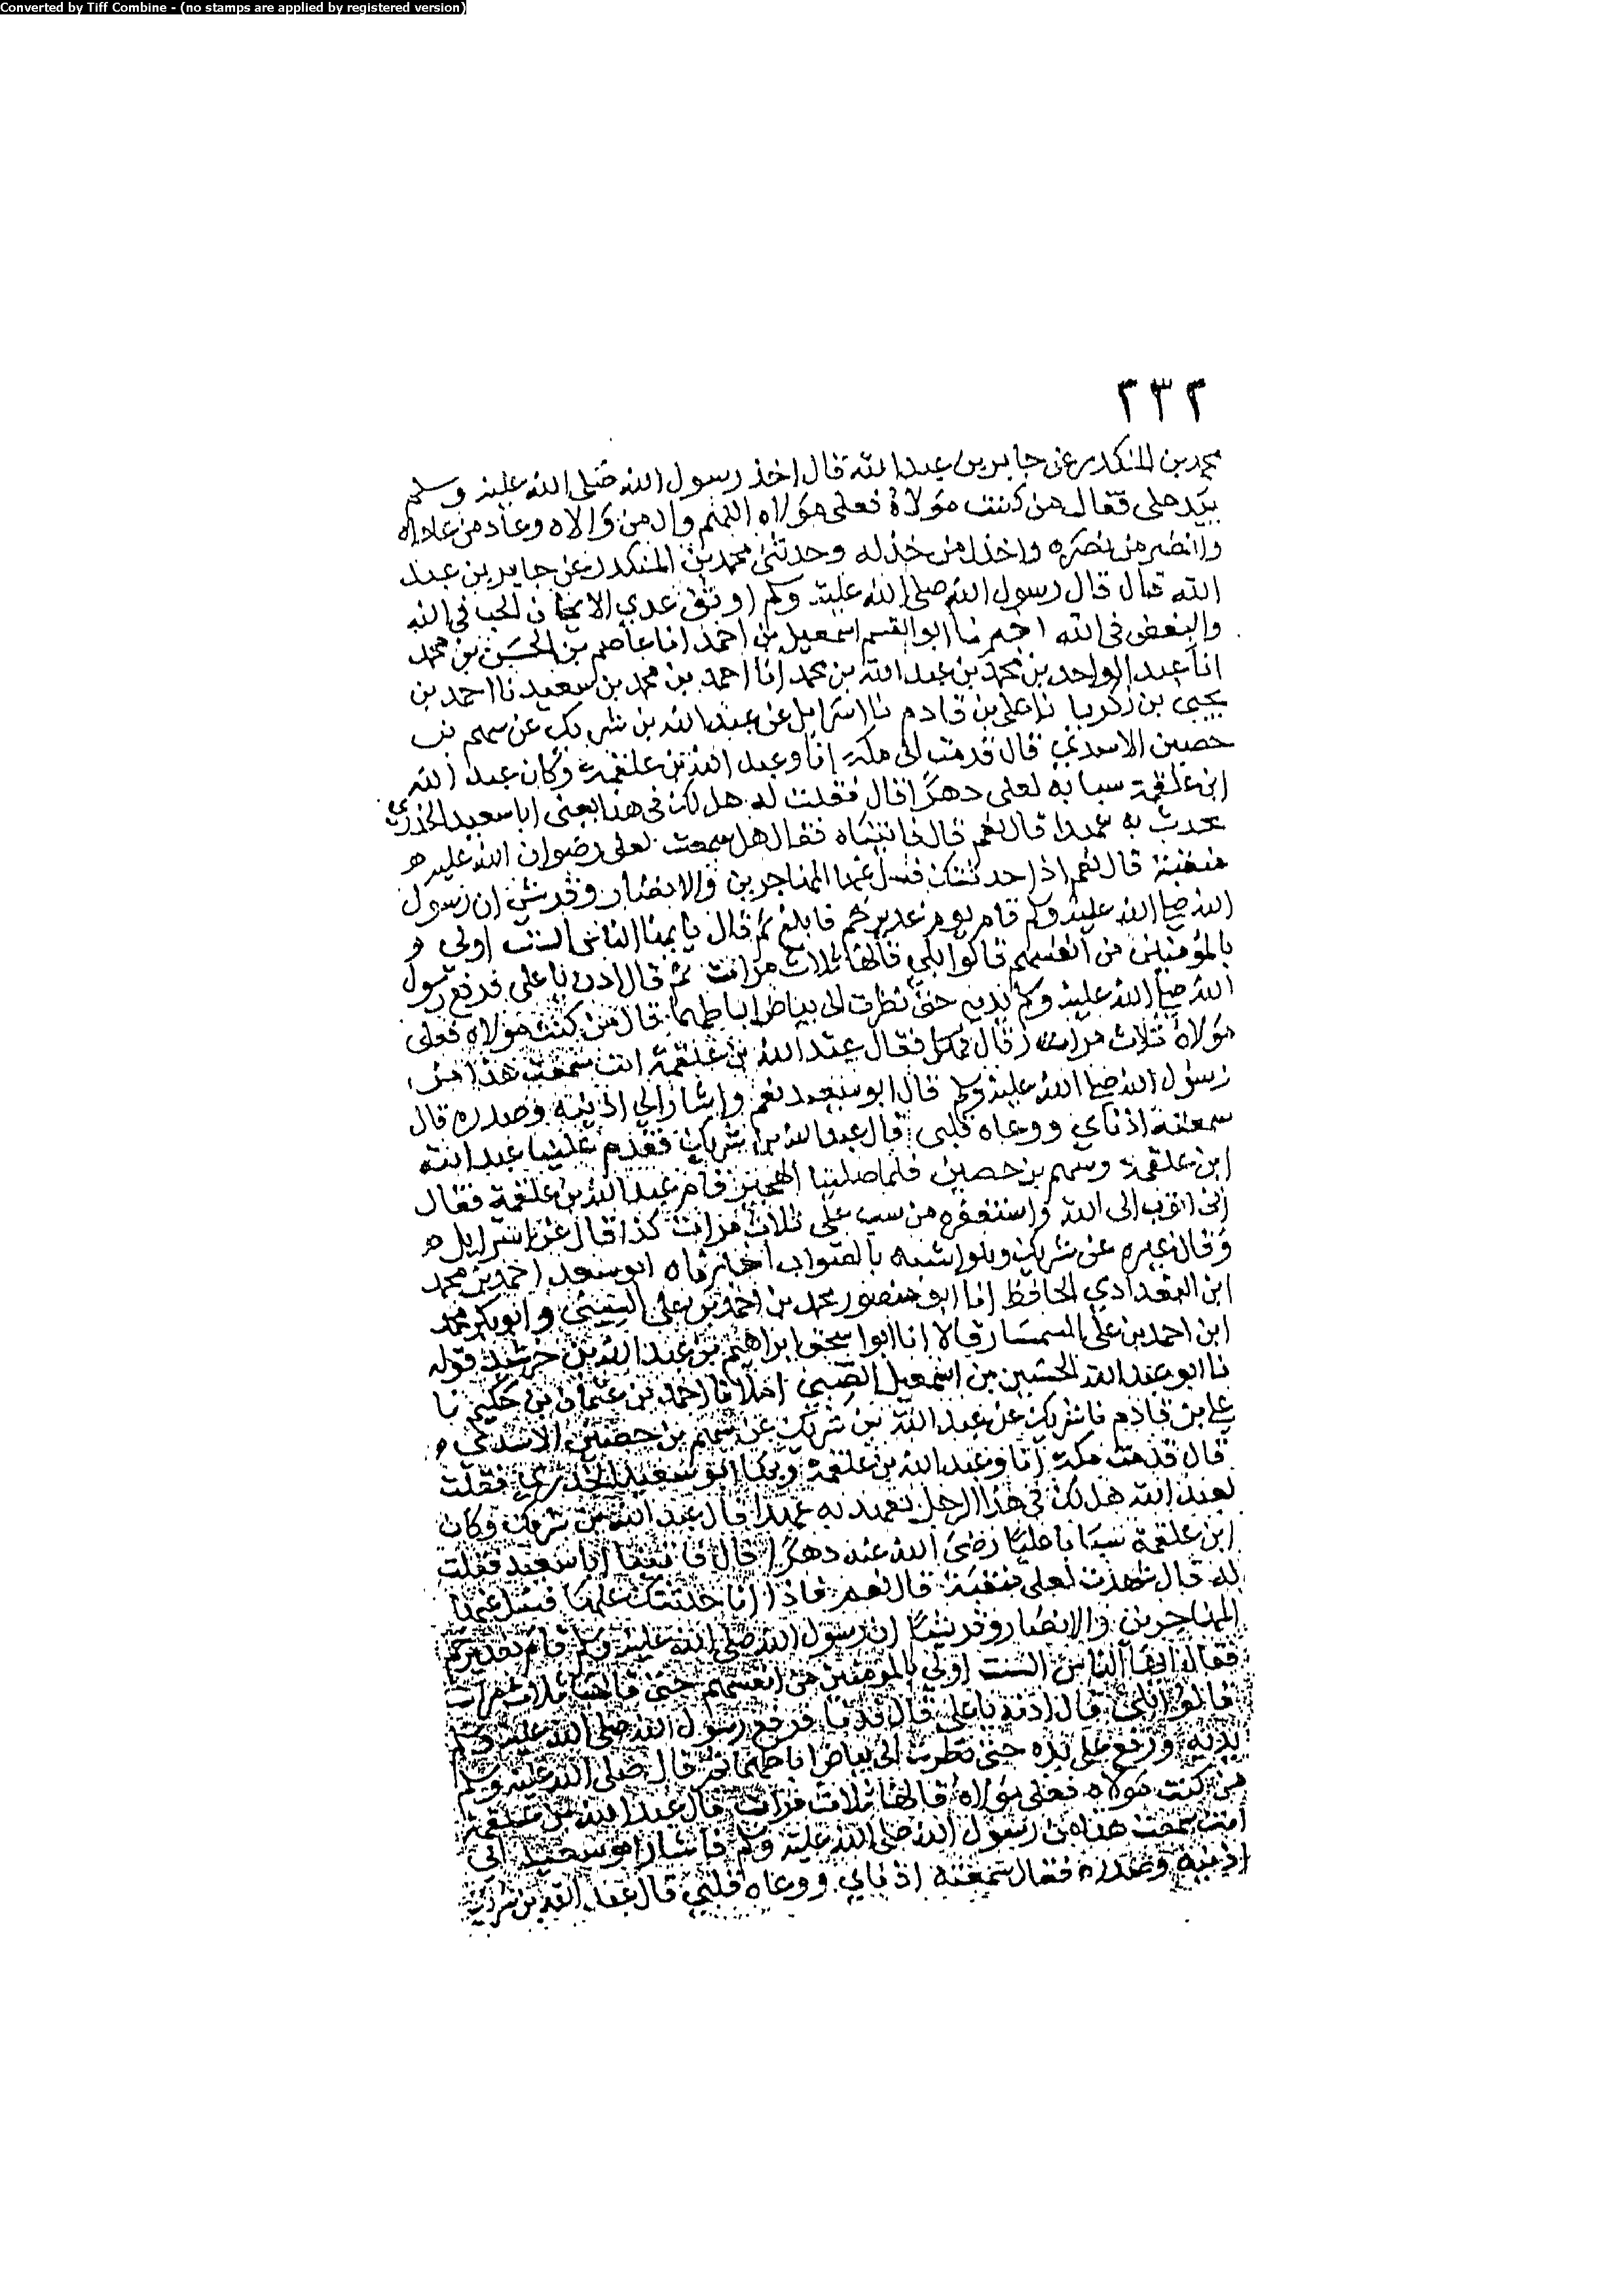 Converted by Tiff Combine - (no stamps are applied by registered version)
٢٣٢
محمد بن المنكدر عن جابر بن عبد الله قال اخذ رسول الله صلى الله عليه وسلم
بيد على فقال من كنت مولاه فعلى مولاه اللهم وال من والاه وعاد من عاداه
وانصر من نصره واخذل من خذله وحدثنى محمد بن المنكدر عن جابر بن عبد
الله قال قال رسول الله صلى الله عليه وسلم اوثق عرى الايمان الحب فى الله
والبغض فى الله اخبرنا ابو القسم اسمعيل بن احمد انا عاصم بن الحسن بن محمد
انا عبد الواحد بن محمد بن عبد الله بن محمد انا احمد بن محمد بن سعيد نا احمد بن
يحيى بن زكريا نا على بن قادم نا اسرائل عن عبد الله بن شريك عن سهم بن
حصين الاسدي قال قدمت الى مكة انا وعبد الله بن علقمة وكان عبد الله
ابن علقمة سبابه لعلى دهرا قال فقلت له هل لك فى هذا يعنى ابا سعيد الخدري
نحدث به عهدا قال نعم قال فاتيناه فقال هل سمعت لعلى رضوان الله عليه
منقبة قال نعم اذا حدثتك فسل عنها المهاجرين والانصار وقريش ان رسول
الله صلى الله عليه وسلم قام يوم غدير خم فابلغ ثم قال يا يها الناس الست اولى
بالمؤمنين من انفسهم قالوا بلى قالها ثلاث مرات ثم قال ادن يا على فرفع رسول
الله صلى الله عليه وسلم يديه حتى نظرت الى بياض اباطهما قال من كنت مولاه فعلى
مولاه ثلاث مرات قال فقال عبد الله بن علقمة انت سمعت هذا من
رسول الله صلى الله عليه وسلم قال ابو سعيد نعم واشار الى اذنيه وصدره قال
سمعته اذناي ووعاه قلبى قال عبد الله بن شريك فقدم علينا عبد الله
ابن علقمة وسهم بن حصين فلما صلينا الهجير قام عبد الله بن علقمة فقال
انى اتوب الى الله واستغفره من سب على ثلاث مرات كذا قال عن اسرايل
وقال غيره عن شريك وهو اشبه بالصواب اخبرناه ابو سعد احمد بن محمد
ابن البغدادي الحافظ انا ابو منصور محمد بن احمد بن على السيبى وابو بكر محمد
ابن احمد بن على السمسار قالا انا ابو اسحق ابراهيم بن عبد الله بن خرشيد قوله
نا ابو عبد الله الحسين بن اسمعيل الضبى املا نا احمد بن عثمان بن حكيم نا
على بن قادم نا شريك عن عبد الله بن شريك عن سهم بن حصين الاسدي
قال قدمت مكة انا وعبد الله بن علقمة وبها ابو سعيد الخدري فقلت
لعبد الله هل لك فى هذا الرجل نعهد به عهدا قال عبد الله بن شريك وكان
ابن علقمة سبابا عليا رضى الله عنه دهرا قال فاتينا ابا سعيد فقلت
له قال شهدت لعلى منقبة قال نعم فاذا انا حدثتك عليها فسل عنها
المهاجرين والانصار وقريشا ان رسول الله صلى الله عليه وسلم قام بغدير خم
فقال ايها الناس الست اولى بالمؤمنين من انفسهم حتى قالها ثلاث مرات
قالوا بلى قال ادنه يا على قال فدنا فرفع رسول الله صلى الله عليه وسلم
يديه ورفع على يده حتى نظرت الى بياض اباطهما ثم قال صلى الله عليه وسلم
من كنت مولاه فعلى مولاه قالها ثلاث مرات قال عبد الله بن علقمة
انت سمعت هذا من رسول الله صلى الله عليه وسلم فاشار ابو سعيد الى
اذنيه وصدره فقال سمعته اذناي ووعاه قلبي قال عبد الله بن شريك